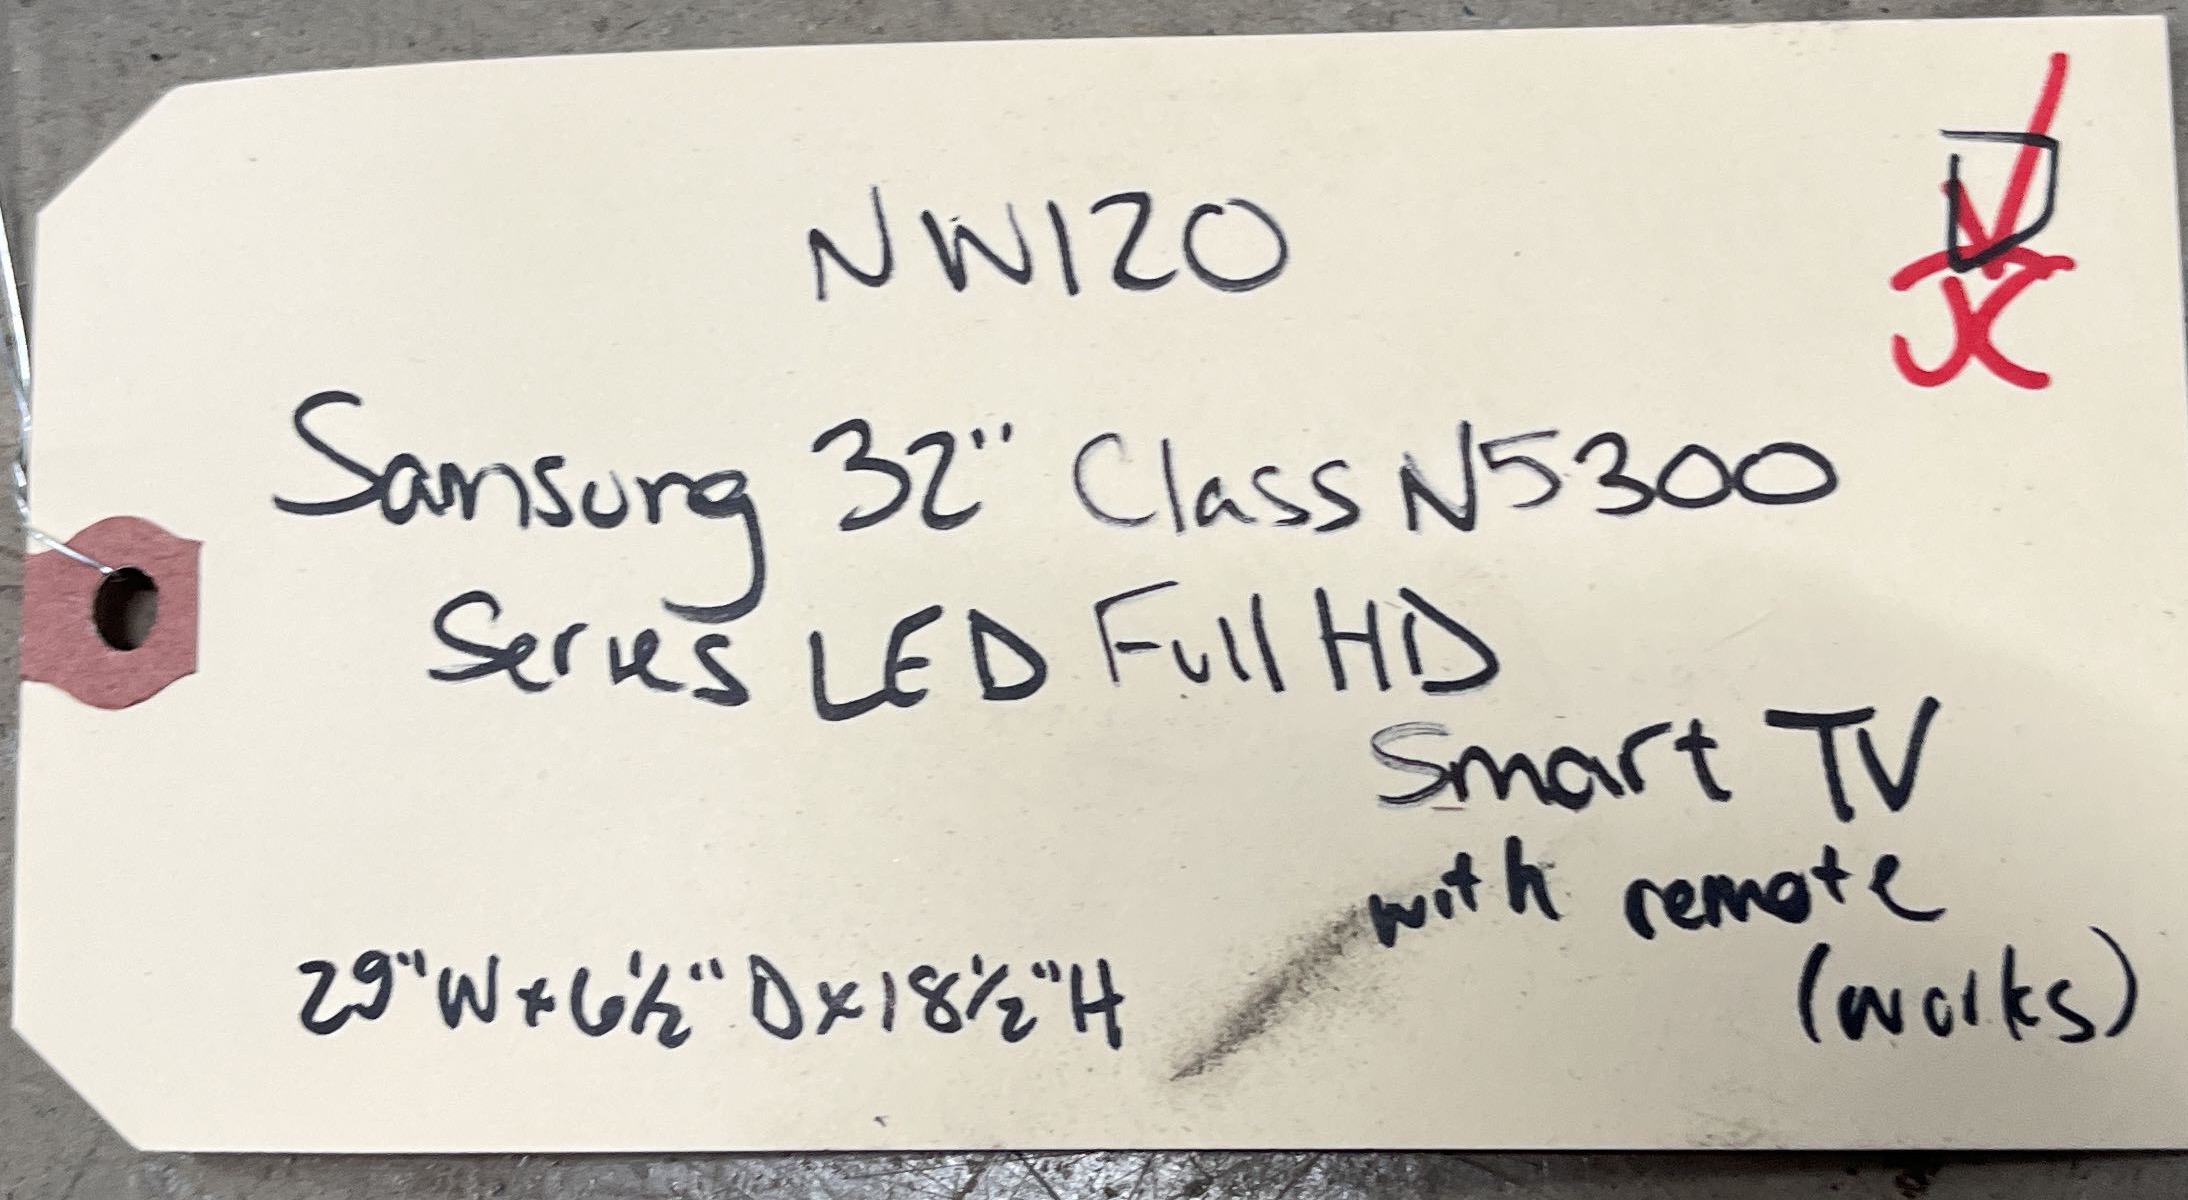 NW120
JC
Samsung 32" Class N5300
Series LED Full HD
Smart TV
with remote
(works)
29"W x 6 1/2" D x 18 1/2" H